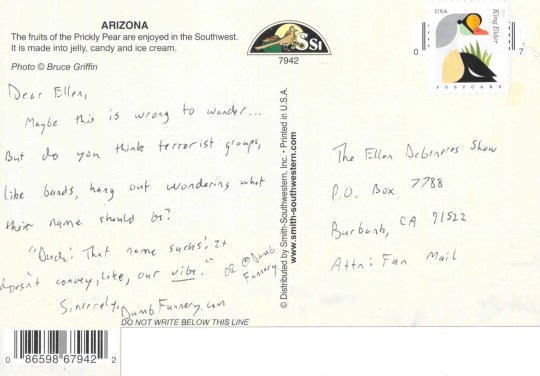 ARIZONA
The fruits of the Prickly Pear are enjoyed in the Southwest.
It is made into jelly, candy and ice cream.
Photo © Bruce Griffin
SSI
7942
USA
King Eider
POSTCARD
0 7
Dear Ellen,
Maybe this is wrong to wonder...
But do you think terrorist groups,
like bands, hang out wondering what
their name should be?
"Dude! That name sucks! It
doesn't convey, like, our vibe."
Sincerely, DumbFunnery.com
OR @Dumb
Funnery
DO NOT WRITE BELOW THIS LINE
0 86598 67942 2
© Distributed by Smith-Southwestern, Inc. • Printed in U.S.A.
www.smith-southwestern.com
The Ellen Degeneres Show
P.O. Box 7788
Burbank, CA 91522
Attn: Fan Mail